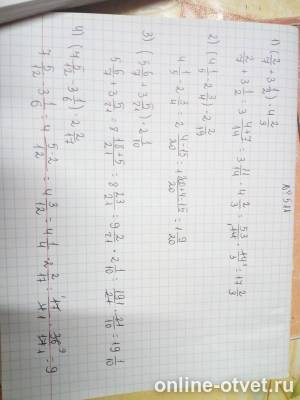 1) (2/7 + 3 1/2) · 4 2/3
2/7 + 3 1/2 = 3 4+7/14 = 3 11/14 · 4 2/3 = 53/14 · 14/3 = 17 2/3
2) (4 1/5 - 2 3/4) · 2 2/19
4 1/5 - 2 3/4 = 2 4-15/20 = 1 20+4-15/20 = 1 9/20
3) (5 6/7 + 3 5/21) · 2 1/10
5 6/7 + 3 5/21 = 8 18+5/21 = 8 23/21 = 9 2/21 · 2 1/10 = 191/21 · 21/10 = 19 1/10
4) (7 5/12 - 3 1/6) · 2 2/17
7 5/12 - 3 1/6 = 4 5-2/12 = 4 3/12 = 4 1/4 · 2 2/17 = 17/4 · 36/17 = 9
online-otvet.ru